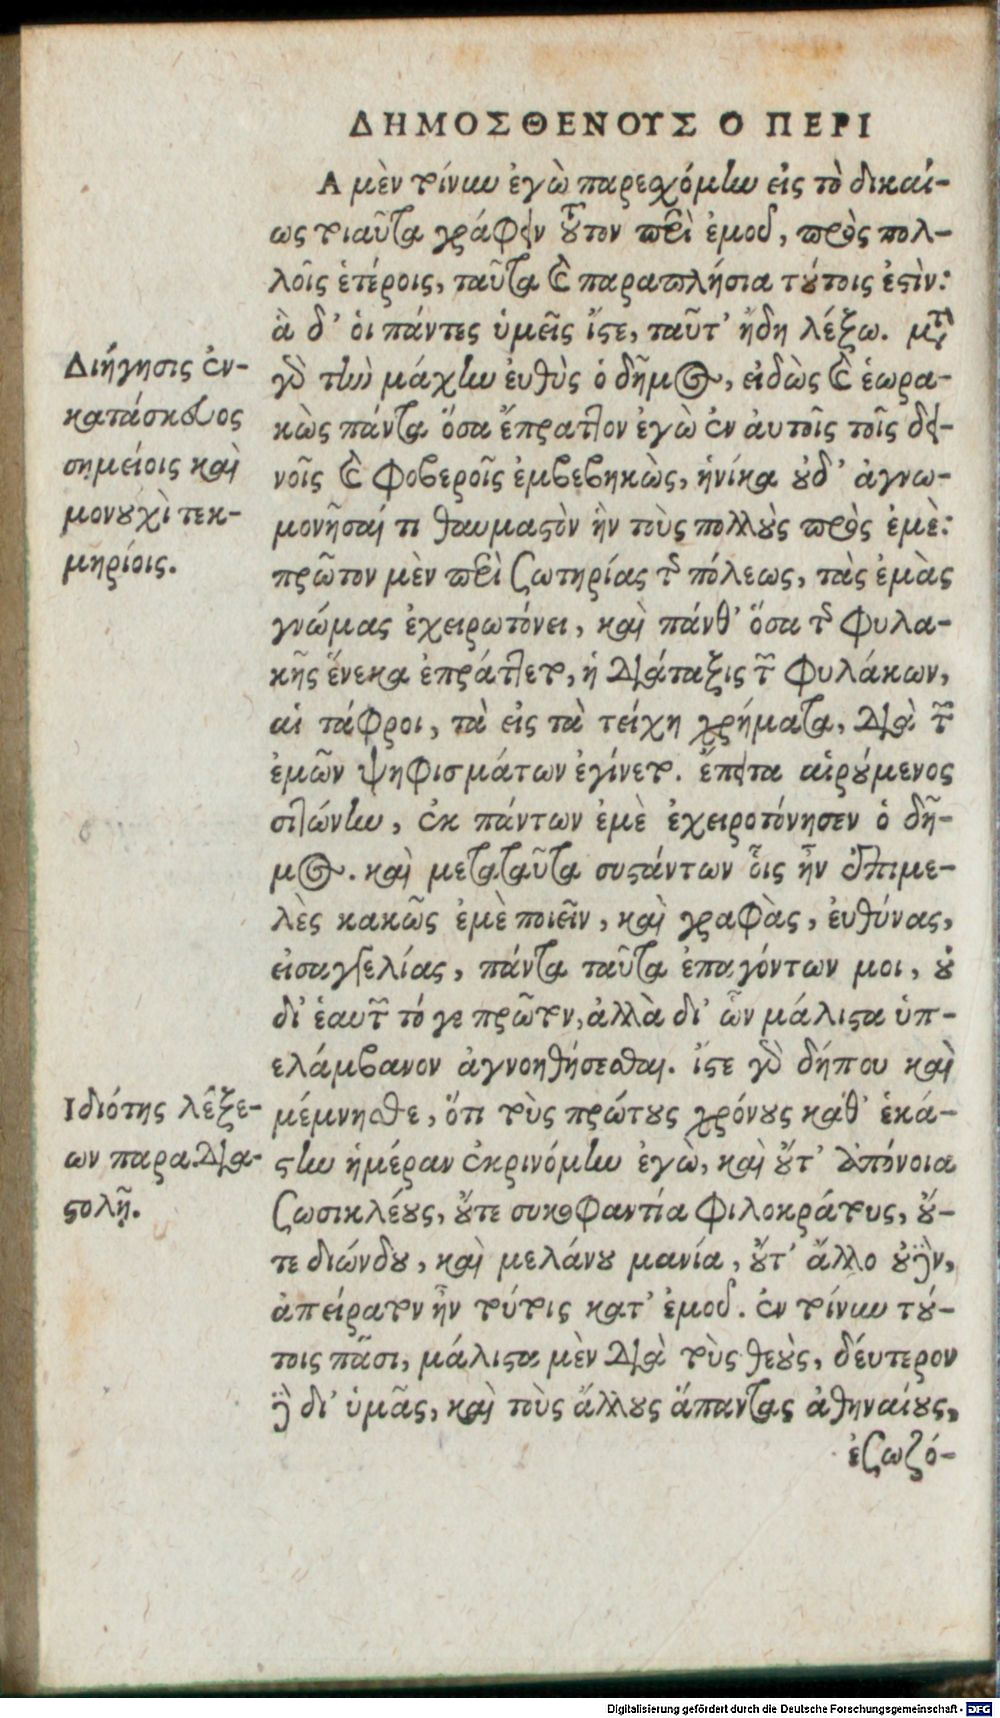 ΔΗΜΟΣΘΕΝΟΥΣ Ο ΠΕΡΙ
Α μὲν τοίνυν ἐγὼ παρεχόμην εἰς τὸ δικαί-
ως τοιαῦτα γράφειν τοῦτον περὶ ἐμοῦ, πρὸς πολ-
λοῖς ἑτέροις, ταῦτα καὶ παραπλήσια τούτοις ἐστὶν:
ἃ δ' οἱ πάντες ὑμεῖς ἴστε, ταῦτ' ἤδη λέξω. μετὰ
γὰρ τὴν μάχην ἐυθὺς ὁ δῆμος, εἰδὼς καὶ ἑωρα-
κὼς πάντα ὅσα ἔπραττον ἐγὼ ἐν ἀυτοῖς τοῖς δει-
νοῖς καὶ φοβεροῖς ἐμβεβηκὼς, ἡνίκα οὐδ' ἀγνω-
μονῆσαί τι θαυμαστὸν ἦν τοὺς πολλοὺς πρὸς ἐμὲ:
πρῶτον μὲν περὶ σωτηρίας τῆς πόλεως, τὰς ἐμὰς
γνώμας ἐχειρωτόνει, καὶ πάνθ' ὅσα τῆς φυλα-
κῆς ἕνεκα ἐπράττετο, ἡ διάταξις τῶν φυλάκων,
αἱ τάφροι, τὰ εἰς τὰ τείχη χρήματα, διὰ τῶν
ἐμῶν ψηφισμάτων ἐγίνετο. ἔπειτα αἱρούμενος
σιτώνην, ἐκ πάντων ἐμὲ ἐχειροτόνησεν ὁ δῆ-
μος. καὶ μεταταῦτα συστάντων οἷς ἦν ἐπιμε-
λὲς κακῶς ἐμὲ ποιεῖν, καὶ γραφὰς, ἐυθύνας,
εἰσαγγελίας, πάντα ταῦτα ἐπαγόντων μοι, οὐ
δι' ἑαυτῶν τό γε πρῶτον, ἀλλὰ δι' ὧν μάλιστα ὑπ-
ελάμβανον ἀγνοηθήσεσθαι. ἴστε γὰρ δήπου καὶ
μέμνησθε, ὅτι τοὺς πρώτους χρόνους καθ' ἑκά-
στην ἡμέραν ἐκρινόμην ἐγὼ, καὶ οὔτ' ἀπόνοια
Σωσικλέους, οὔτε συκοφαντία Φιλοκράτους, οὔ-
τε διώνδου, καὶ μελάνου μανία, οὔτ' ἄλλο οὐδὲν,
ἀπείρατον ἦν τούτοις κατ' ἐμοῦ. ἐν τοίνυν τού-
τοις πᾶσι, μάλιστα μὲν διὰ τοὺς θεοὺς, δέυτερον
δὲ δι' ὑμᾶς, καὶ τοὺς ἄλλους ἅπαντας ἀθηναίους,
ἐσωζό-
Διήγησις ἐν-
κατάσκευος
σημείοις καὶ
μονουχὶ τεκ-
μηρίοις.
Ιδιότης λέξε-
ων παρα δια-
στολῇ.
Digitalisierung gefördert durch die Deutsche Forschungsgemeinschaft - DFG